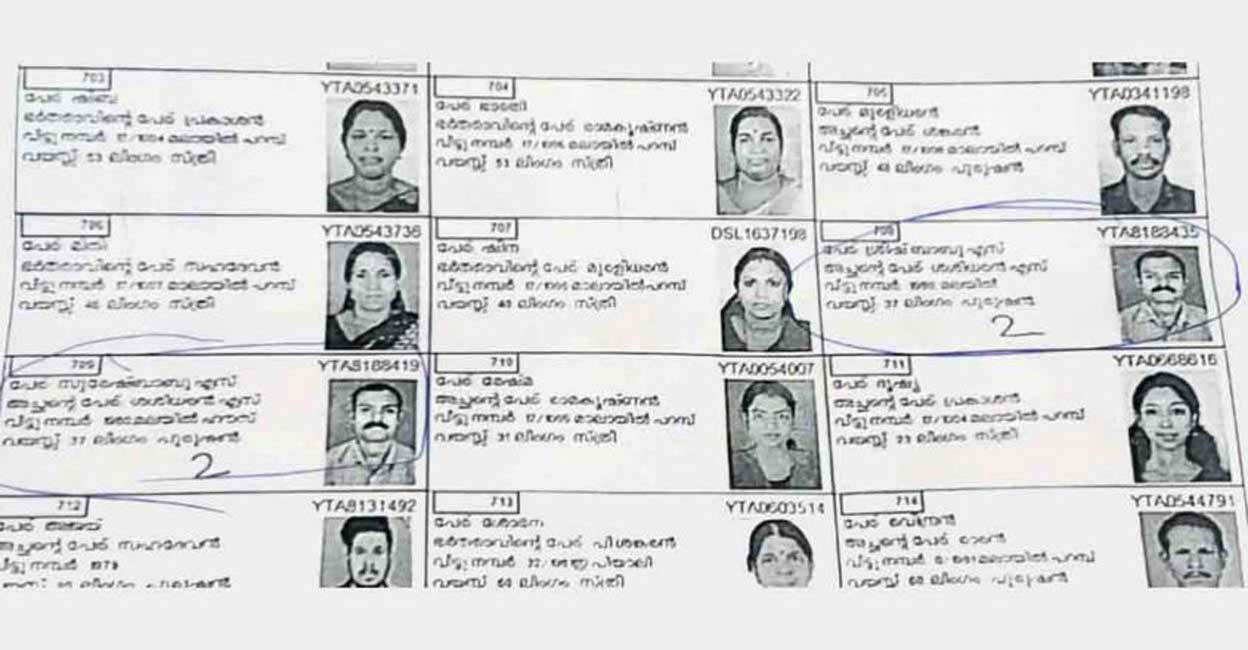 703
YTA0543371
പേര് ഷീബ
ഭർത്താവിന്റെ പേര് പ്രകാശൻ
വീട്ടു നമ്പർ 17/1004 മലായിൽ പറമ്പ്
വയസ്സ് 53 ലിംഗം സ്ത്രീ
704
YTA0543322
പേര് ഭാരതി
ഭർത്താവിന്റെ പേര് രാമകൃഷ്ണൻ
വീട്ടു നമ്പർ 17/1005 മാലായിൽ പറമ്പ്
വയസ്സ് 53 ലിംഗം സ്ത്രീ
705
YTA0341198
പേര് മുരളീധരൻ
അച്ഛന്റെ പേര് ശങ്കരൻ
വീട്ടു നമ്പർ 17/1006 മാലായിൽ പറമ്പ്
വയസ്സ് 48 ലിംഗം പുരുഷൻ
706
YTA0543736
പേര് മിനി
ഭർത്താവിന്റെ പേര് സഹദേവൻ
വീട്ടു നമ്പർ മാലായിൽ പറമ്പ്
വയസ്സ് ലിംഗം സ്ത്രീ
707
DSL1637198
പേര് ഷീന
ഭർത്താവിന്റെ പേര് മുരളീധരൻ
വീട്ടു നമ്പർ മാലായിൽപറമ്പ്
വയസ്സ് ലിംഗം സ്ത്രീ
708
YTA8188435
പേര് ബാബു എസ്
അച്ഛന്റെ പേര് ശശിധരൻ എസ്
വീട്ടു നമ്പർ മലയിൽ
വയസ്സ് 37 ലിംഗം പുരുഷൻ
2
709
YTA8188419
പേര് സുരേഷ്ബാബു എസ്
അച്ഛന്റെ പേര് ശശിധരൻ എസ്
വീട്ടു നമ്പർ മലയിൽ ഹൗസ്
വയസ്സ് 37 ലിംഗം പുരുഷൻ
2
710
YTA0054007
പേര് രേഷ്മ
അച്ഛന്റെ പേര് രാമകൃഷ്ണൻ
വീട്ടു നമ്പർ 17/1005 മാലായിൽ പറമ്പ്
വയസ്സ് 31 ലിംഗം സ്ത്രീ
711
YTA0668616
പേര് ദൃശ്യ
അച്ഛന്റെ പേര് പ്രകാശൻ
വീട്ടു നമ്പർ 17/1004 മലായിൽ പറമ്പ്
വയസ്സ് 23 ലിംഗം സ്ത്രീ
712
YTA8131492
പേര് അജയ്
അച്ഛന്റെ പേര് സഹദേവൻ
വീട്ടു നമ്പർ
ലിംഗം പുരുഷൻ
713
YTA0603514
പേര് ശോഭന
ഭർത്താവിന്റെ പേര് പി ശങ്കരൻ
വീട്ടു നമ്പർ
വയസ്സ് ലിംഗം സ്ത്രീ
714
YTA0544791
പേര് വേന്ദ്രൻ
അച്ഛന്റെ പേര് രാമൻ
വീട്ടു നമ്പർ മലായിൽ പറമ്പ്
വയസ്സ് ലിംഗം പുരുഷൻ